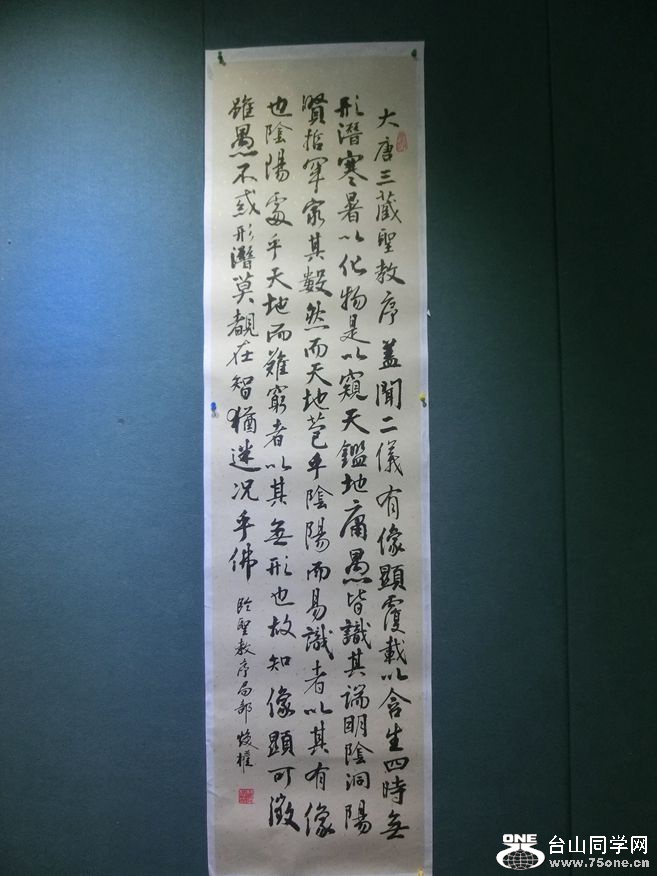 大唐三藏聖教序盖聞二儀有像顯覆載以含生四時無
形潛寒暑以化物是以窺天鑑地庸愚皆識其端明陰洞陽
賢哲罕窮其數然而天地苞乎陰陽而易識者以其有像
也陰陽處乎天地而難窮者以其無形也故知像顯可徵
雖愚不惑形潛莫覩在智猶迷况乎佛
臨聖教序局部 權
ONE 台山同学网
www.75one.cn